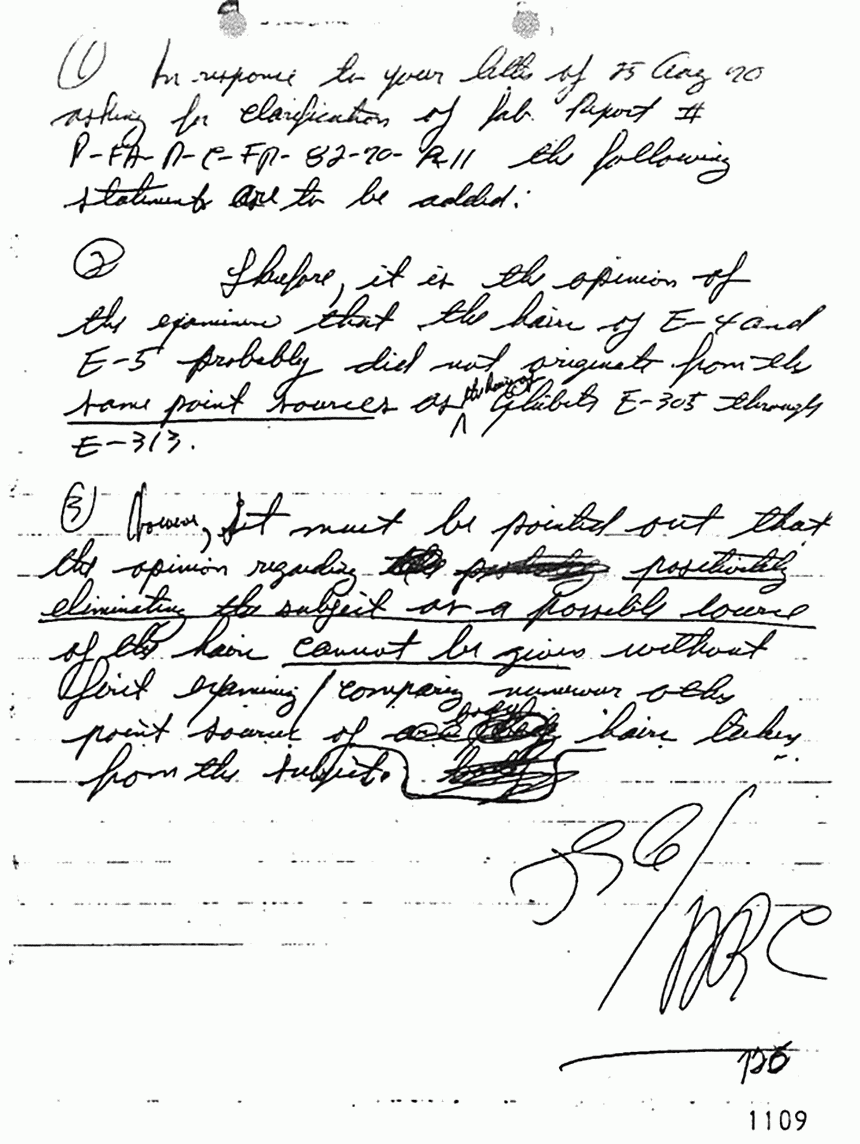 (1) In response to your letter of 25 Aug 70
asking for clarification of Lab. Report #
P-FA-D-C-FP-82-70-R-11 the following
statements are to be added:
(2) Therefore, it is the opinion of
the examiner that the hairs of E-4 and
E-5 probably did not originate from the
same point sources as the hairs of Exhibits E-305 through
E-313.
(3) However, it must be pointed out that
the opinion regarding positively
eliminating the subject as a possible source
of the hairs cannot be given without
first examining/comparing numerous other
point source of body hairs taken
from the subject.
1109